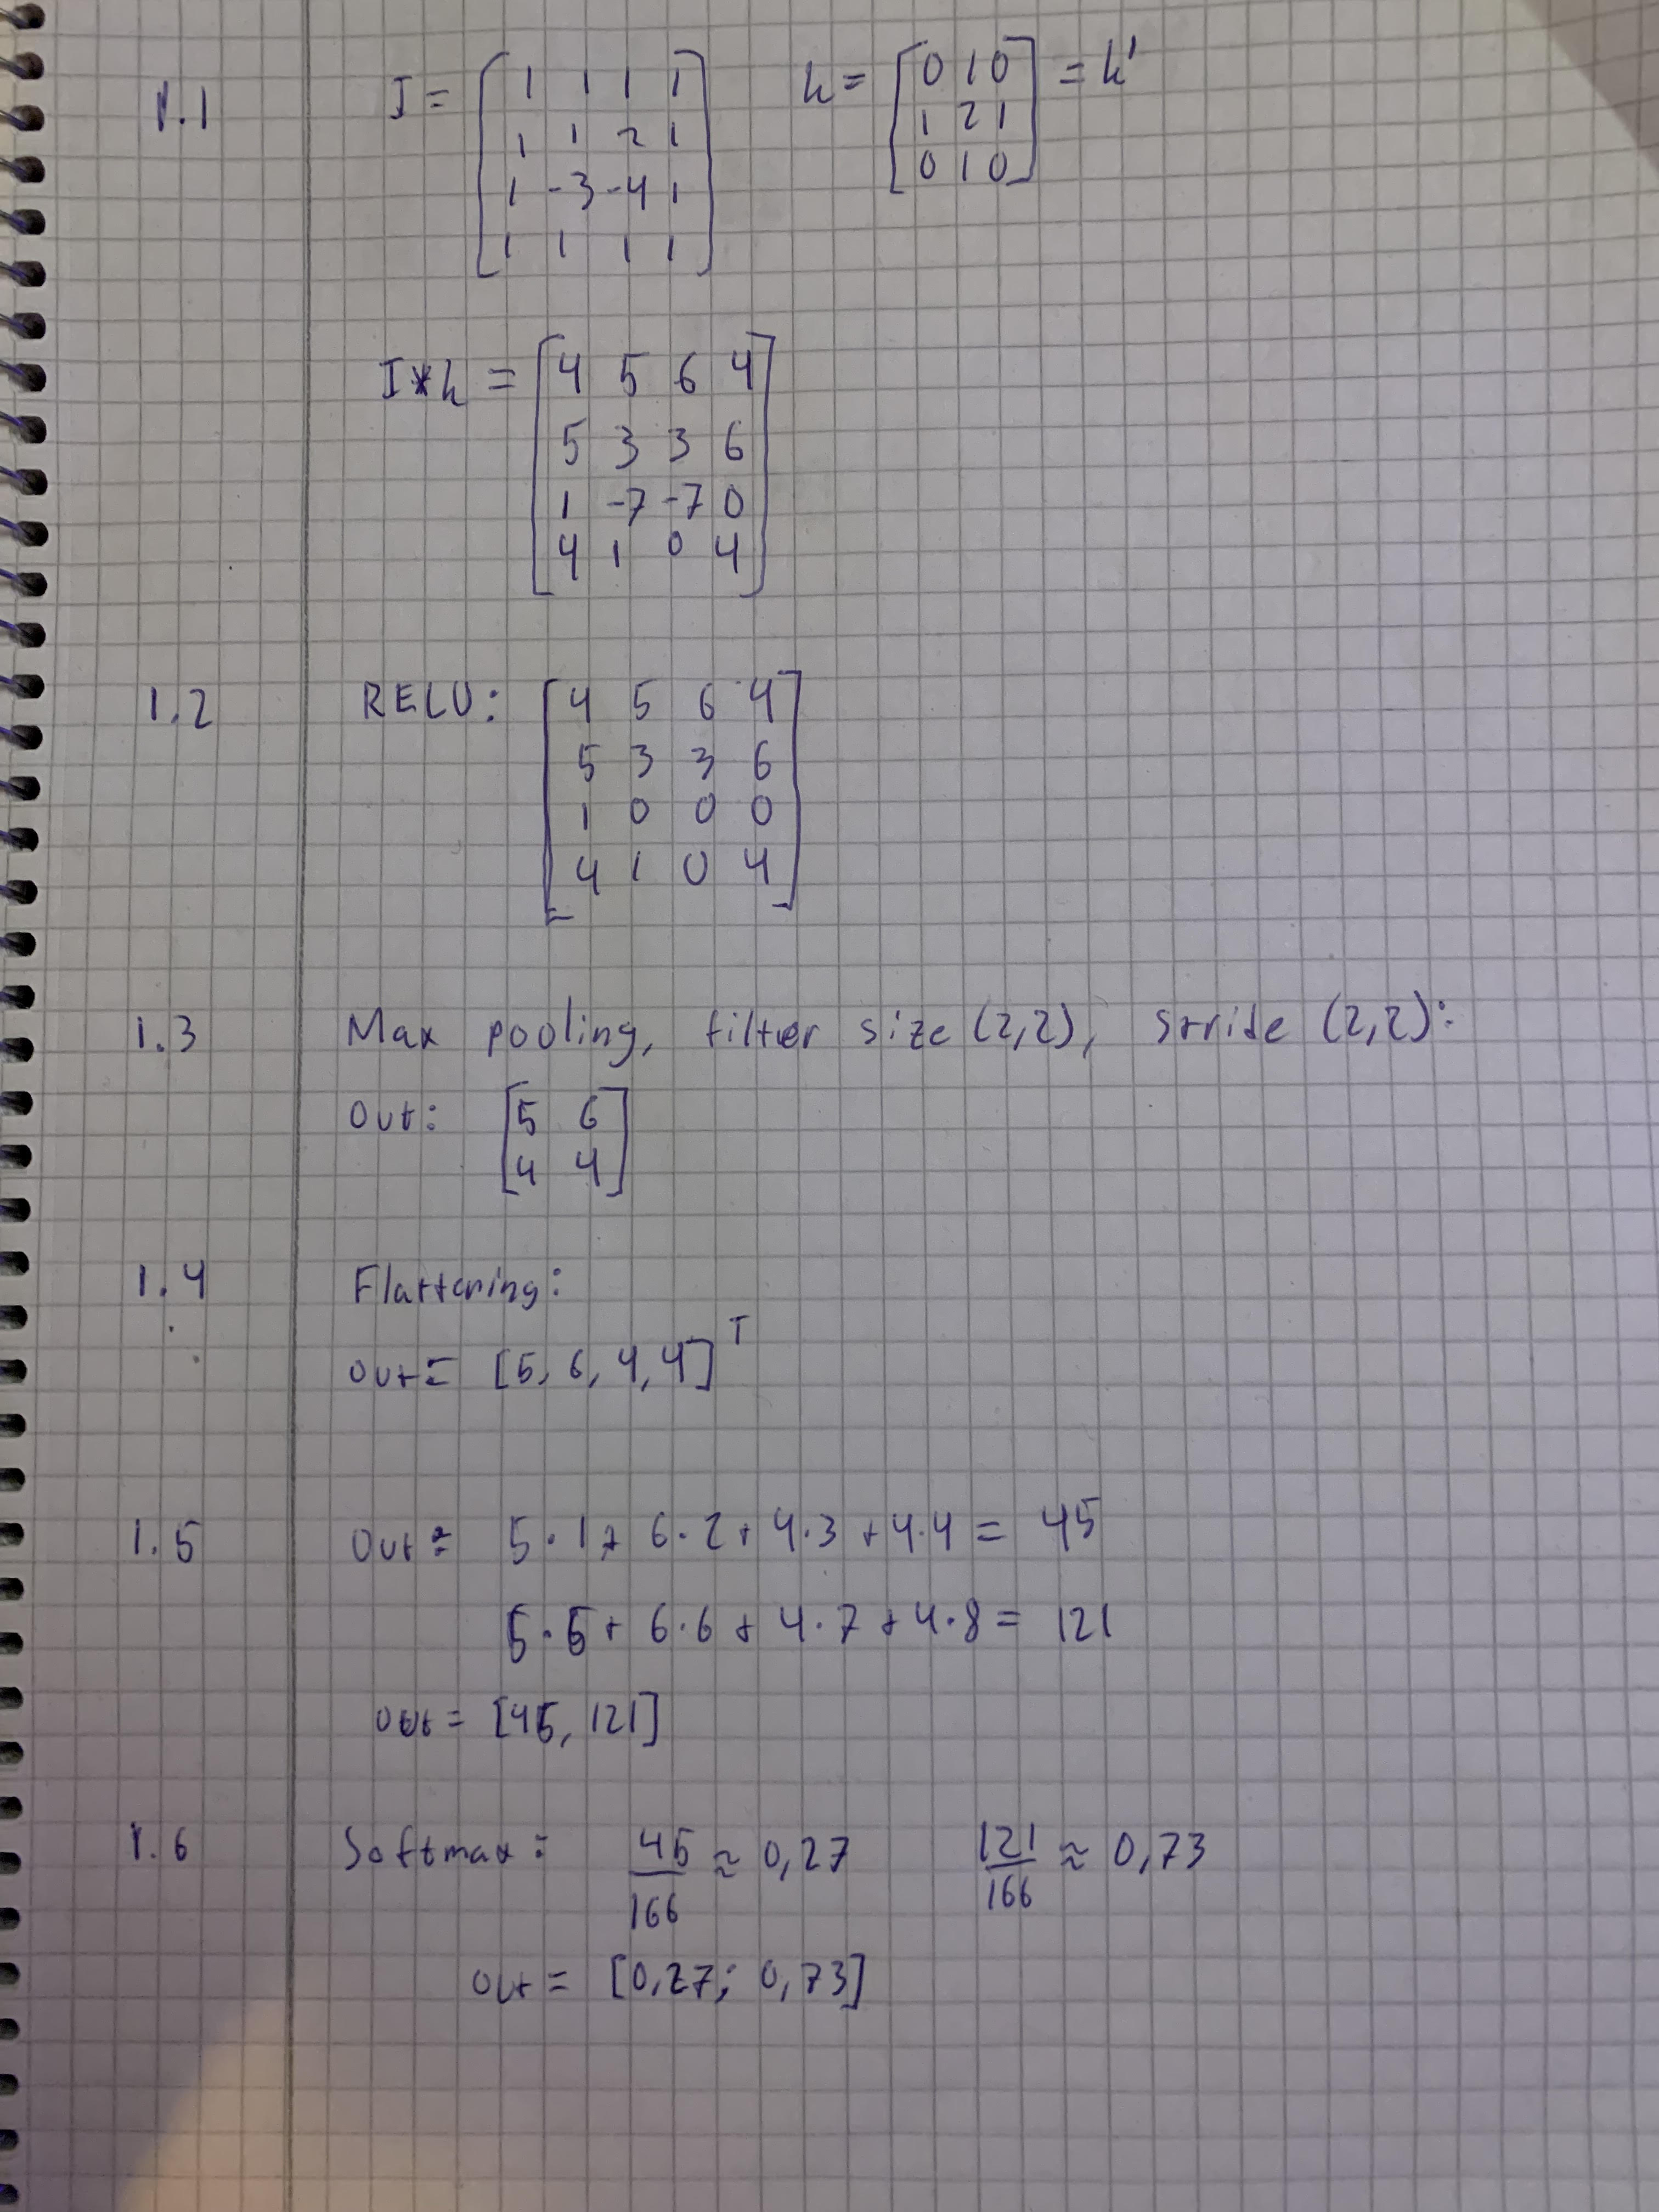 1.1 I = [1 1 1 1 h = [0 1 0 = h'
1 1 2 1 1 2 1
1 -3 -4 1 0 1 0]
1 1 1 1]
I*h = [4 5 6 4
5 3 3 6
1 -7 -7 0
4 1 0 4]
1.2 RELU: [4 5 6 4
5 3 3 6
1 0 0 0
4 1 0 4]
1.3 Max pooling, filter size (2,2), stride (2,2):
Out: [5 6
4 4]
1.4 Flattening:
Out = [5, 6, 4, 4]^T
1.5 Out = 5·1 + 6·2 + 4·3 + 4·4 = 45
5·5 + 6·6 + 4·7 + 4·8 = 121
Out = [45, 121]
1.6 Softmax: 45/166 ≈ 0,27 121/166 ≈ 0,73
Out = [0,27; 0,73]